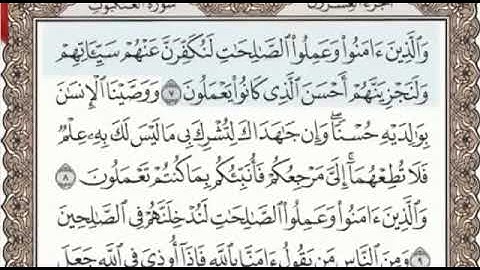 سورة العنكبوت الجزء العشرون
وَالَّذِينَ ءَامَنُوا۟ وَعَمِلُوا۟ الصَّالِحَاتِ لَنُكَفِّرَنَّ عَنْهُمْ سَيِّـَٔاتِهِمْ
وَلَنَجْزِيَنَّهُمْ أَحْسَنَ الَّذِى كَانُوا۟ يَعْمَلُونَ ٧ وَوَصَّيْنَا الْإِنسَانَ
بِوَالِدَيْهِ حُسْنًا ۖ وَإِن جَاهَدَاكَ لِتُشْرِكَ بِى مَا لَيْسَ لَكَ بِهِۦ عِلْمٌ
فَلَا تُطِعْهُمَا ۚ إِلَىَّ مَرْجِعُكُمْ فَأُنَبِّئُكُم بِمَا كُنتُمْ تَعْمَلُونَ ٨
وَالَّذِينَ ءَامَنُوا۟ وَعَمِلُوا۟ الصَّالِحَاتِ لَنُدْخِلَنَّهُمْ فِى الصَّالِحِينَ
٩ وَمِنَ النَّاسِ مَن يَقُولُ ءَامَنَّا بِاللَّهِ فَإِذَا أُوذِىَ فِى اللَّهِ جَعَلَ